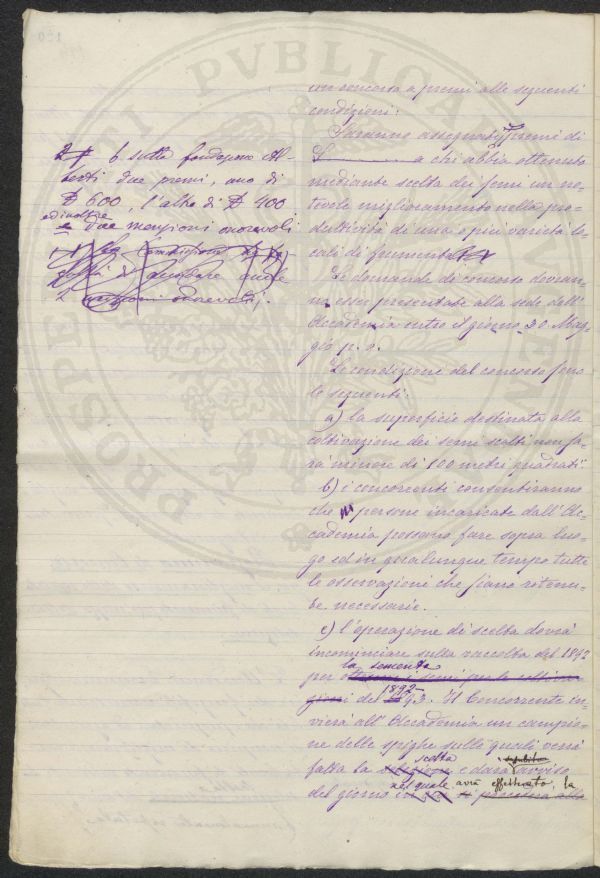 un concorso a premi alle seguenti
condizioni:
Saranno assegnati premi di
L a chi abbia ottenuto
mediante scelta dei semi un no-
tevole miglioramento nella pro-
duttività di una o più varietà lo-
cali di frumento
Le domande di concorso dovran-
no esser presentate alla sede dell'
Accademia entro il giorno 30 Mag-
gio p. v.
Le condizioni del concorso sono
le seguenti:
a) la superficie destinata alla
coltivazione dei semi scelti non sa-
rà minore di 100 metri quadrati.
b) i concorrenti consentiranno
che persone incaricate dall'Ac-
cademia possano fare sopra luo-
go ed in qualunque tempo tutte
le osservazioni che siano ritenu-
te necessarie.
c) l'operazione di scelta dovrà
incominciare sulla raccolta del 1892
per la sementa
del 1892-93. Il Concorrente in-
vierà all'Accademia un campio-
ne delle spighe sulle quali verrà
fatta la scelta e darà avviso
del giorno nel quale avrà effettuato, la
sulla fondazione Al-
berti due premi, uno di
£ 600, l'altro di £ 400
ed inoltre
due menzioni onorevoli
2 menzioni onorevoli.
PROSPERITATI PVBLICAE